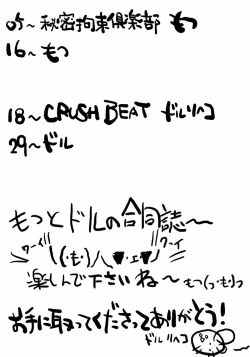 05～秘密拘束倶楽部 もつ
16～もつ
18～CRUSH BEAT ドルリハコ
29～ドル
もつとドルの合同誌～
ワーイ\(･ш･)八▼･ェ▼/ワーイ
楽しんで下さいね～ もつ(っ･ш･)っ
お手に取ってくださってありがとう!
ドルリハコ